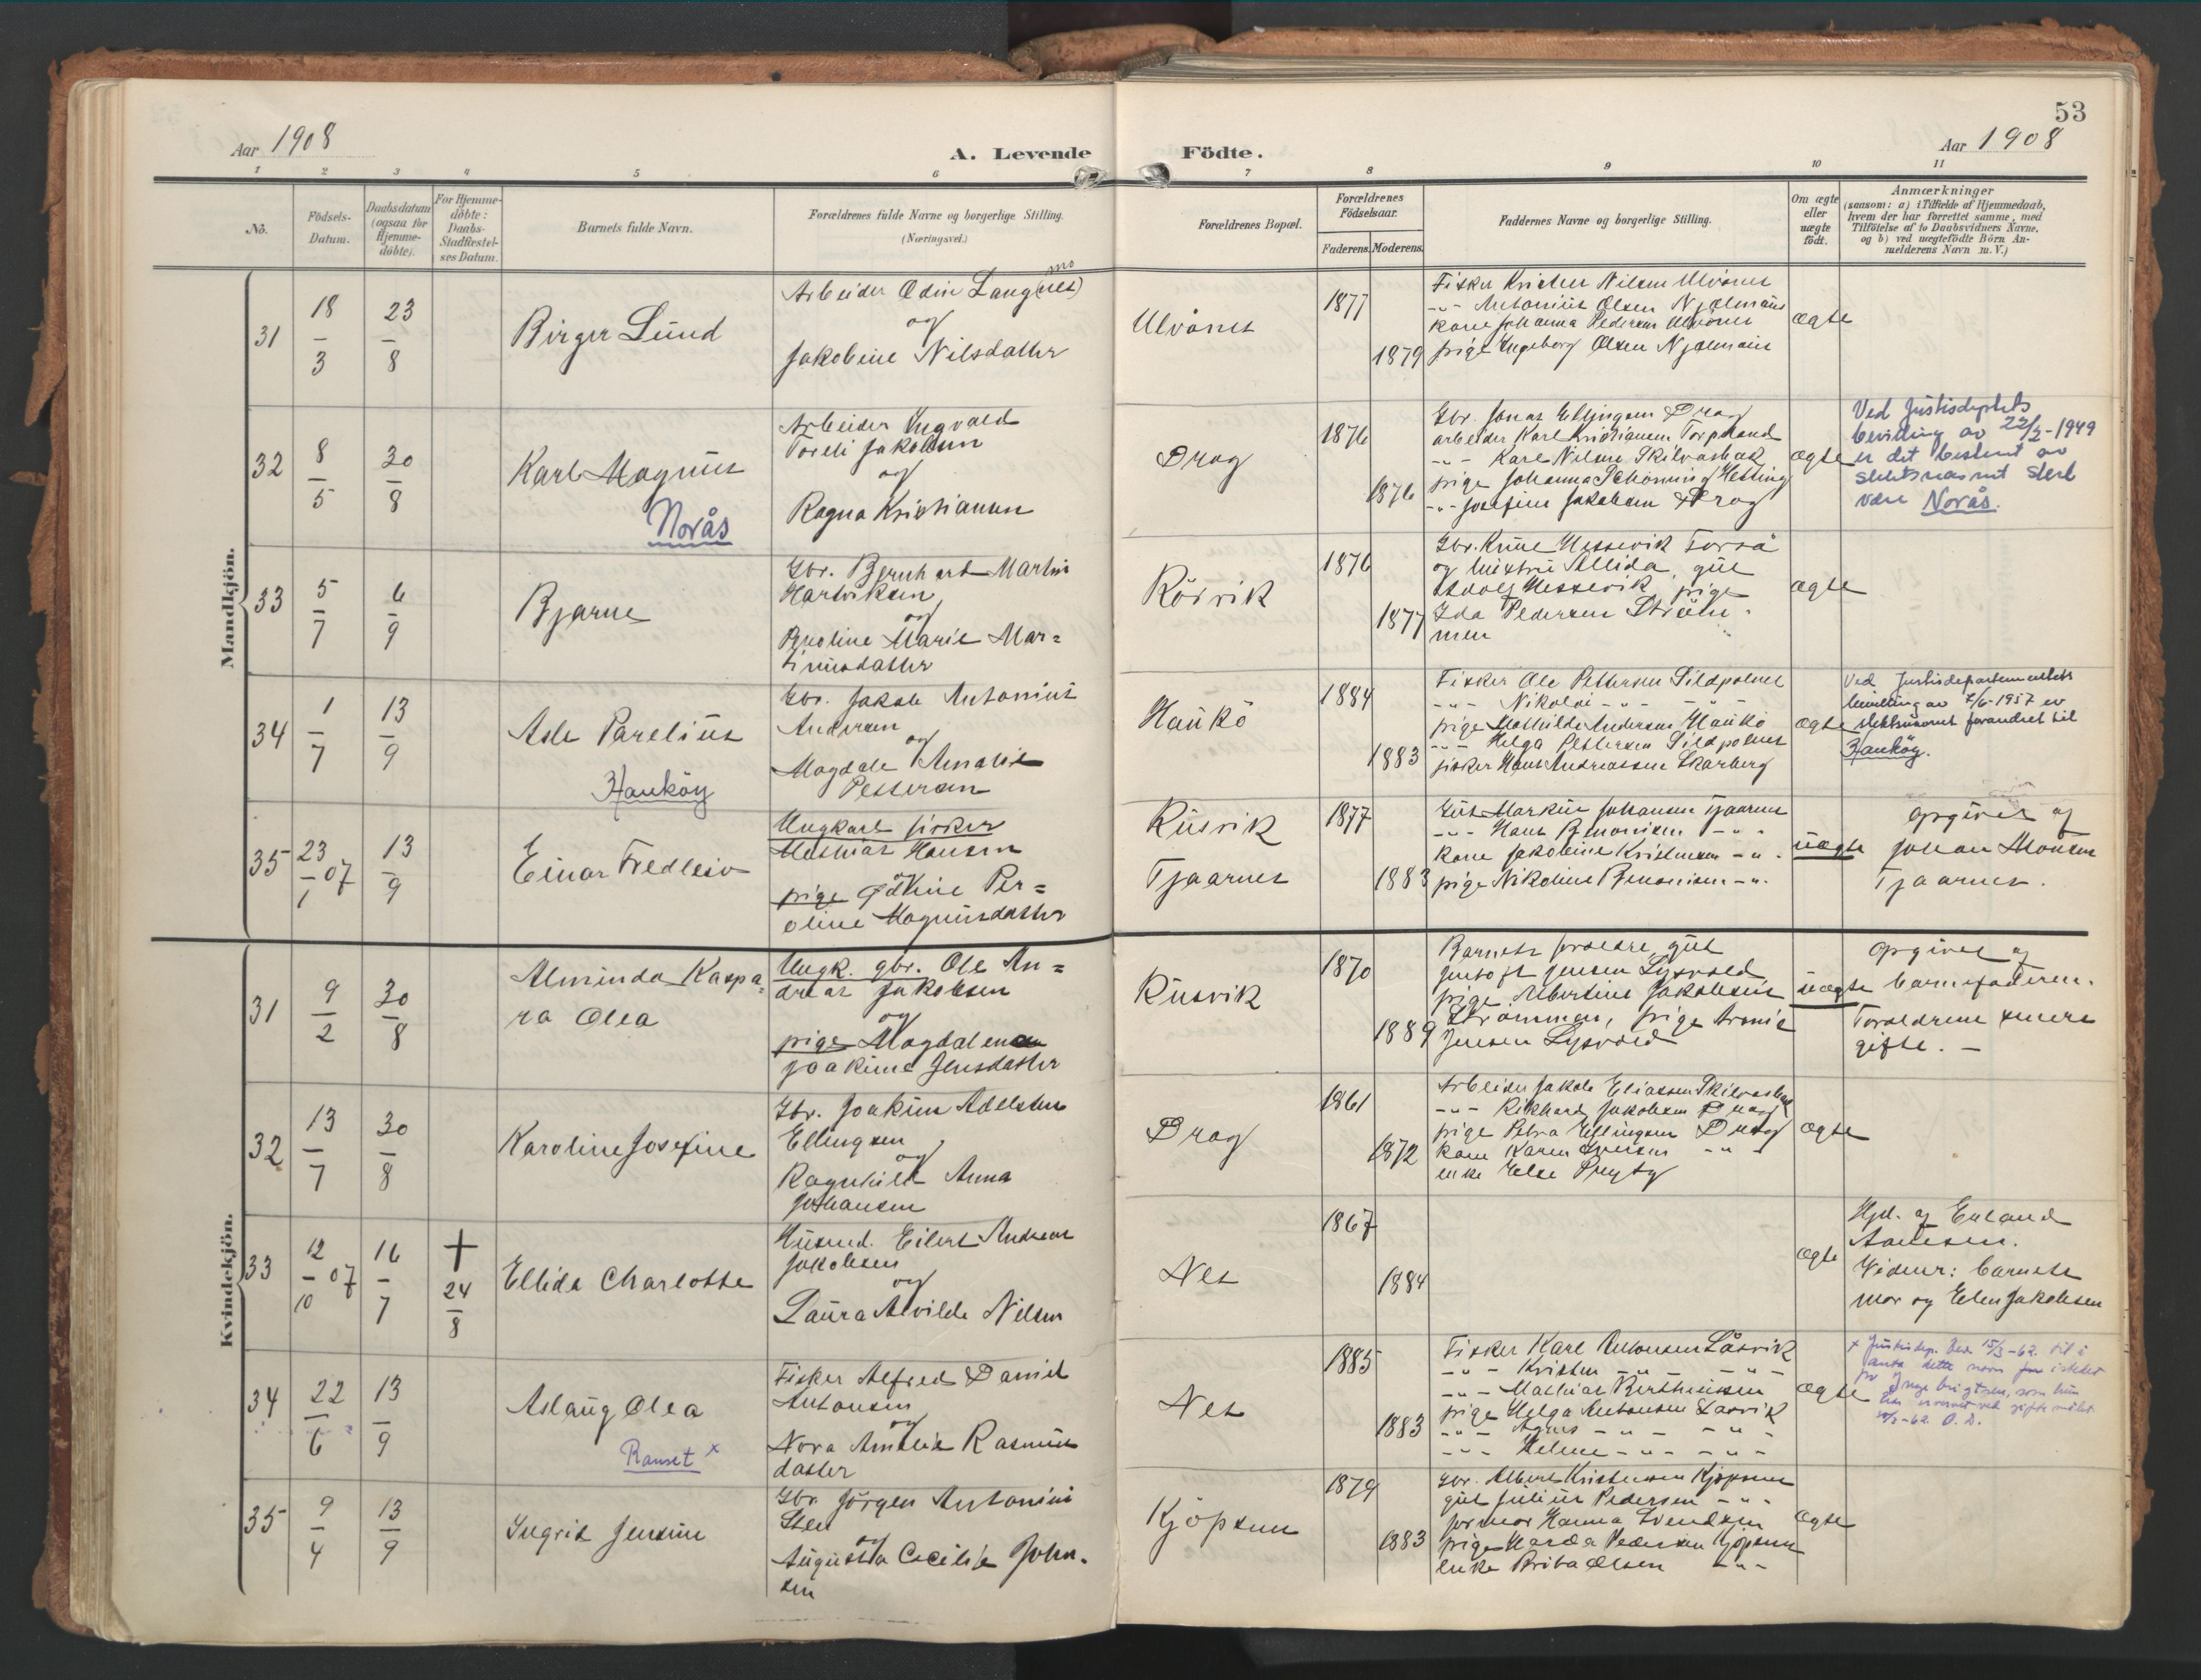 53
Aar 1908
A. Levende Födte.
Aar 1908
1 2 3 4 5 6 7 8 9 10 11
No.
Födsels-
Datum.
Daabsdatum
(ogsaa for
Hjemme-
döbte).
For Hjemme-
döbte:
Daabs-
Stadfæstel-
ses Datum.
Barnets fulde Navn.
Forældrenes fulde Navne og borgerlige Stilling.
(Næringsvei.)
Forældrenes Bopæl.
Forældrenes
Födselsaar.
Faderens. Moderens.
Faddernes Navne og borgerlige Stilling.
Om ægte
eller
uægte
födt.
Anmærkninger
(saasom: a) i Tilfælde af Hjemmedaab,
hvem der har forrettet samme, med
Tilföielse af to Daabsvidners Navne,
og b) ved uægtefödte Börn An-
melderens Navn m.V.)
Mandkjön.
31
18/3
23/8
Birger Lund
Arbeider Odin Lang(nes)
mo
og
Jakobine Nilsdatter
Ulvönes
1877
1879
Fisker Kristen Nilsen Ulvönes
-"- Antonius Olsen Njælmsnes
kone Johanna Pedersen Ulvönes
pige Ingeborg Olsen
ægte
32
8/5
30/8
Karl Magnus
Norås
Arbeider Ingvald
Toreli Jakobsen
og
Ragna Kristiansen
Drag
1876
1876
Gbr. Jonas Ellingsen Drag
arbeider Karl Kristiansen
-"- Karl Nilsen Skilvasbak
pige Johanna
-"- Josefine Jakobsen Drag
ægte
Ved Justisdeptets
bevilling av 22/2-1949
er det bestemt av
slektsnavnet skal
være Norås.
33
5/7
6/9
Bjarne
Gbr. Bernhard Martin
Hartviksen
og
Pernoline Marie Mar=
tinusdatter
Rörvik
1876
1877
Gbr. Knut Hessevik Forså
og hustru Allida, gut
Adolf Hessevik, pige
Ida Pedersen Ström-
men
ægte
34
1/7
13/9
Asle Parelius
Hauköy
Gbr. Jakob Antonius
Andersen
og
Magdale Amalie
Pettersen
Haukö
1884
1883
Fisker Ole Pettersen Sildpolnes
-"- Nikolai -"- -"-
pige Mathilde Andersen Haukö
-"- Helga Pettersen Sildpolnes
fisker Hans Andreassen Skarberg
ægte
Ved Justisdepartementets
bevilling av 4/6-1957 er
slektsnavnet forandret til
Hauköy.
35
23/1 07
13/9
Einar Fredleiv
Ungkarl fisker
Mathias Hansen
og
pige Jakine Per=
oline Magnusdatter
Rusvik
Tjaarnes
1877
1883
Gut Markus Johansen Tjaarnes
-"- Hans Benonisen -"-
kone Jakobine Kristensen -"-
pige Nikoline Benonisen -"-
uægte
opgivet af
Johan Monsen
Tjaarnes.
Kvindekjön.
31
9/2
30/8
Alminda Kaspa=
ra Olea
Ungk. gbr. Ole An=
dreas Jakobsen
og
pige Magdalena
Joakime Jensdatter
Rusvik
1870
1889
Barnets foreldre, gut
Jentoft Jensen Lysvold
pige Albertine Jakobsen
Strömmen, pige Aronie
Jensen Lysvold
uægte
opgivet af
barnefaderen.
Foreldrene senere
gifte. —
32
13/7
30/8
Karoline Josefine
Gbr. Joakim Adelsten
Ellingsen
og
Ragnhild Anna
Johansen
Drag
1861
1872
Arbeider Jakob Eliassen Skilvasbak
-"- Rikhard Jakobsen Drag
pige Petra Ellingsen Drag
kone Karen Iversen -"-
enke Else
ægte
33
12/10 07
16/7
+
24/8
Ellida Charlotte
Husmd. Eilert Andreas
Jakobsen
og
Laura Alvilde Nilsen
Nes
1867
1884
ægte
Hjd. af Erland
Amesen.
Vidner: barnets
mor og Elen Jakobsen
34
22/6
13/9
Aslaug Olea
Ranset x
Fisker Alfred Daniel
Antonsen
og
Nora Amalie Rasmus
datter
Nes
1885
1883
Fisker Karl Antonsen Låsvik
-"- Kristen -"- -"-
-"- Mathias Berthinssen
pige Helga Antonsen Låsvik
-"- Agnes -"- -"-
-"- Helene -"- -"-
ægte
x Justisdep. bev. 15/3-62 til å
anta dette navn istedet
for Brigtsen, som hun
har ervervet ved giftemålet
O. D.
35
9/4
13/9
Ingrid Jensine
Gbr. Jörgen Antonius
Sten
og
Augusta Cecilie John-
sen
Kjöpsnes
1879
1883
Gbr. Albert Kristensen Kjöpsnes
gut Julius Pedersen -"-
formor Hanna Svendsen
pige Harda Pedersen Kjöpsnes
enke Olsen -"-
ægte